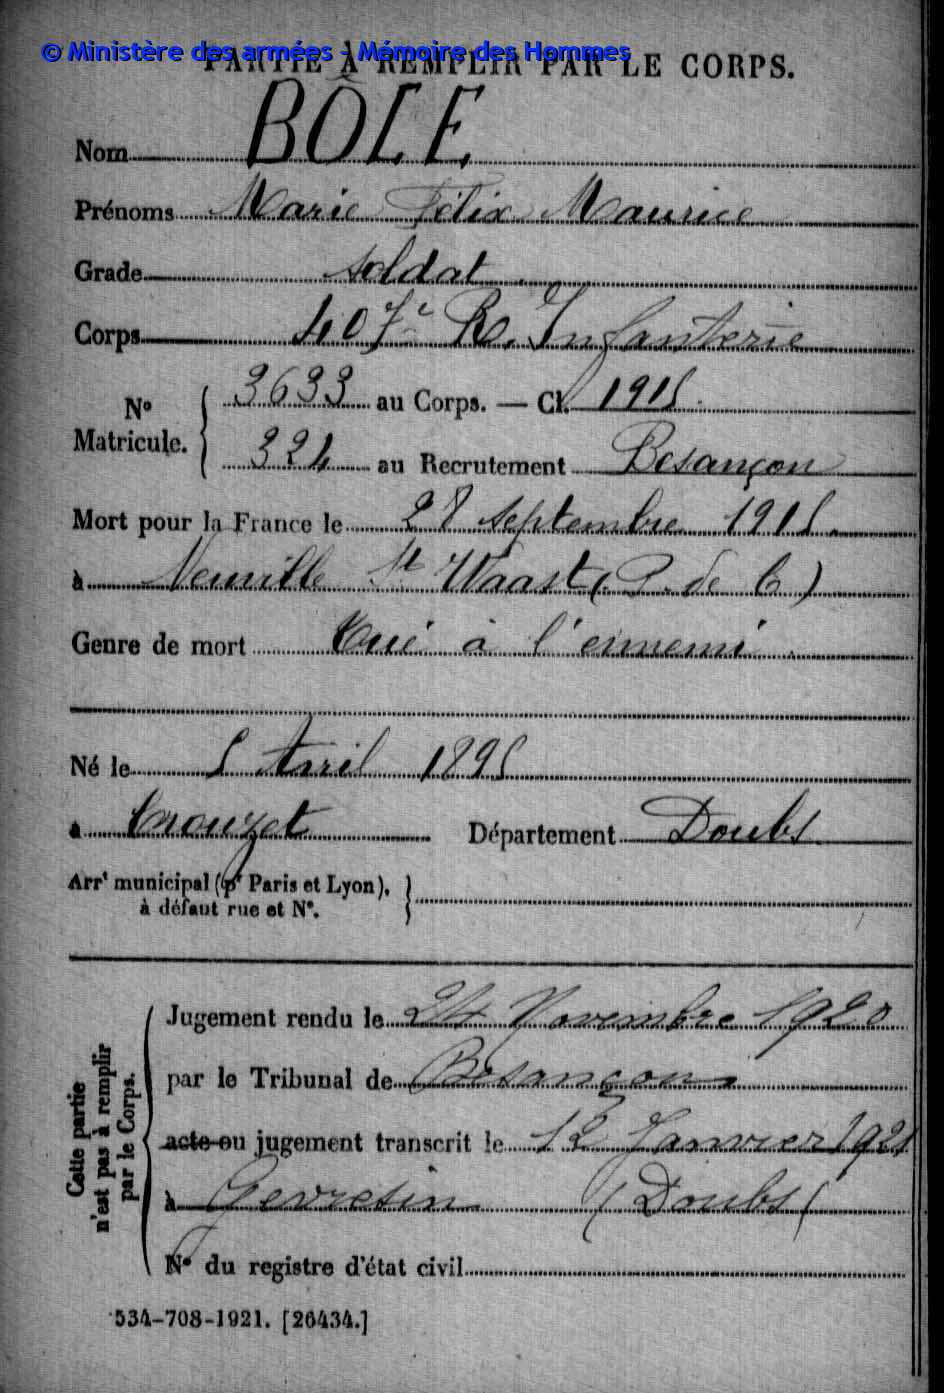 © Ministère des armées - Mémoire des Hommes
PARTIE À REMPLIR PAR LE CORPS.
Nom BÔLE
Prénoms Marie Félix Maurice
Grade soldat
Corps 407e R. Infanterie
No Matricule. { 3633 au Corps. — Cl. 1915
324 au Recrutement Besançon
Mort pour la France le 28 septembre 1915.
à Neuville St Waast (P. de C)
Genre de mort Tué à l'ennemi.
Né le 5 Avril 1895
à Crouzet Département Doubs.
Arrt municipal (pr Paris et Lyon),
à défaut rue et No.
Cette partie n'est pas à remplir par le Corps.
Jugement rendu le 24 Novembre 1920
par le Tribunal de Besançon
acte ou jugement transcrit le 12 Janvier 1921
à Gevresin (Doubs)
No du registre d'état civil
534-708-1921. [26434.]